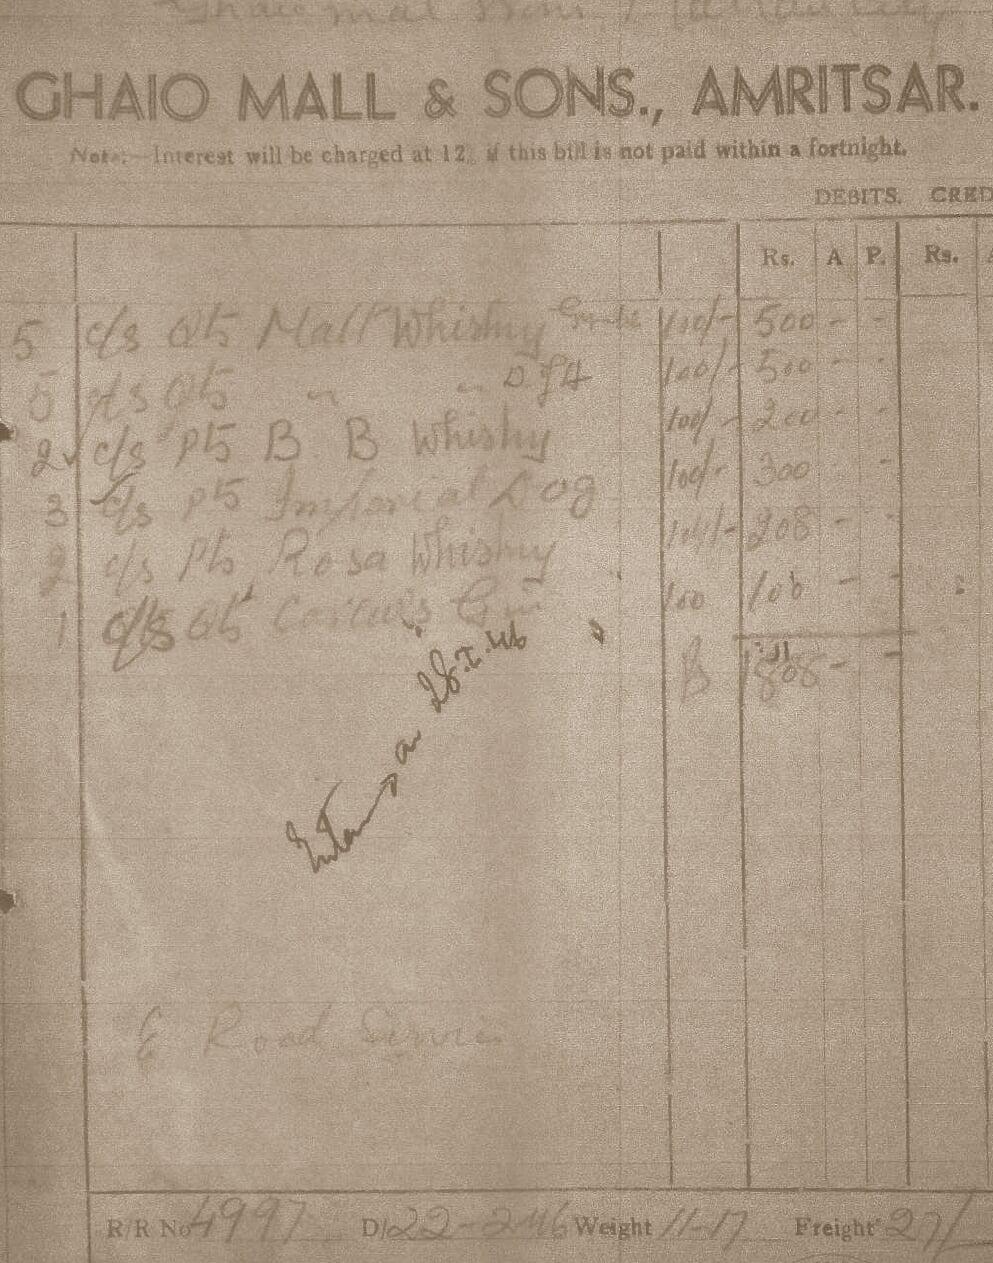 GHAIO MALL & SONS., AMRITSAR.
Note:- Interest will be charged at 12 if this bill is not paid within a fortnight.
DEBITS. CRED
Rs. A P. Rs.
5 c/s Qts Malt Whisky 100/- 500 - -
5 c/s Qts " " 100/- 500 - -
2 c/s pts B B Whisky 100/- 200 - -
3 c/s pts Imperial Dog 100/- 300 -
2 c/s Pts Rosa Whisky 208 - -
1 c/s Qts Gin 100 - -
28.I.46
Road Service
R/R No 4997 D/ 22-2-46 Weight 11-17 Freight 27/